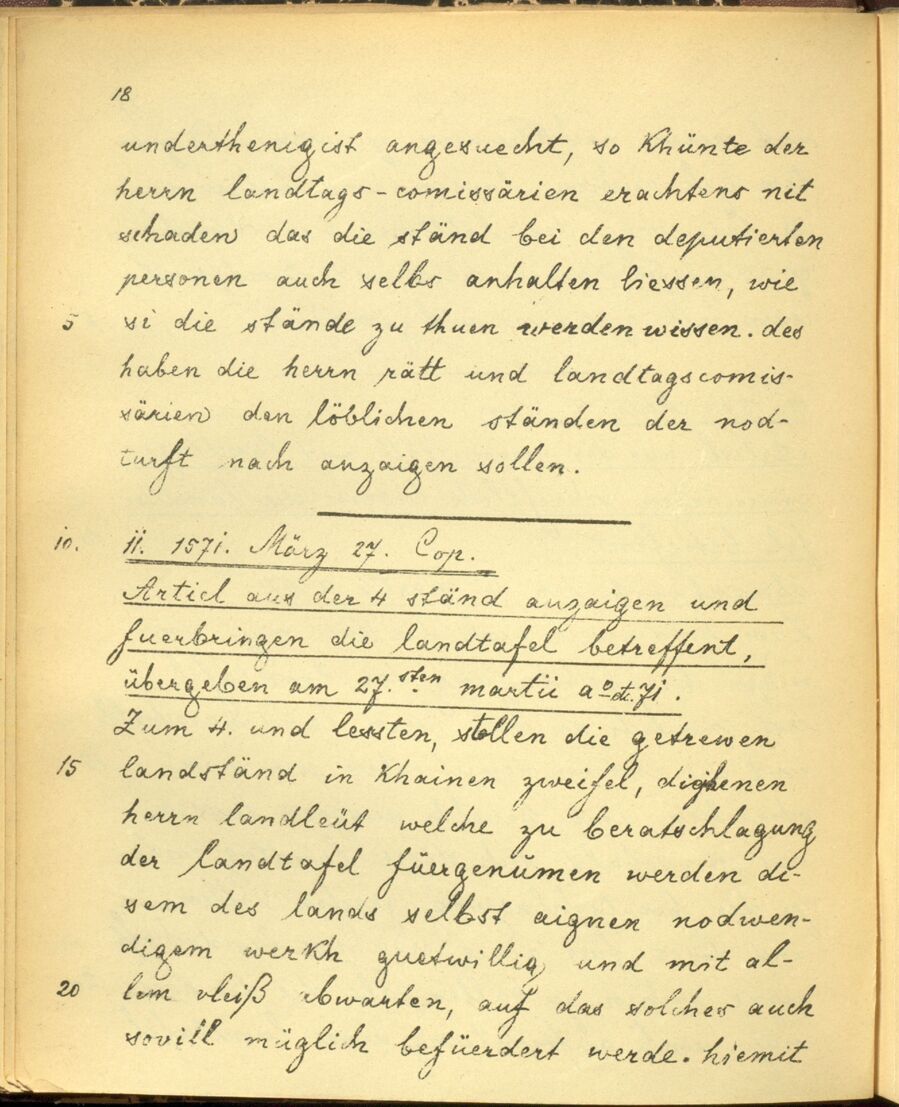 18
underthenigist angesuecht, so khünte der
herrn landtags-comissärien erachtens nit
schaden das die ständ bei den deputierten
personen auch selbs anhalten liessen, wie
5 si die stände zu thuen werden wissen. des
haben die herrn rätt und landtagscomis-
särien den löblichen ständen der nod-
turft nach anzaigen sollen.
10. 11. 1571. März 27. Cop.
Articl aus der 4 ständ anzaigen und
fuerbringen die landtafel betreffent,
übergeben am 27.sten martii aº dt. 71.
Zum 4. und lessten, stellen die getrewen
15 landständ in khainen zweifel, dijhenen
herrn landleüt welche zu beratschlagung
der landtafel füergenümen werden di-
sem des lands selbst aignen nodwen-
digem werkh guetwillig und mit al-
20 lem vleiß abwarten, auf das solches auch
sovill müglich befüerdert werde. hiemit